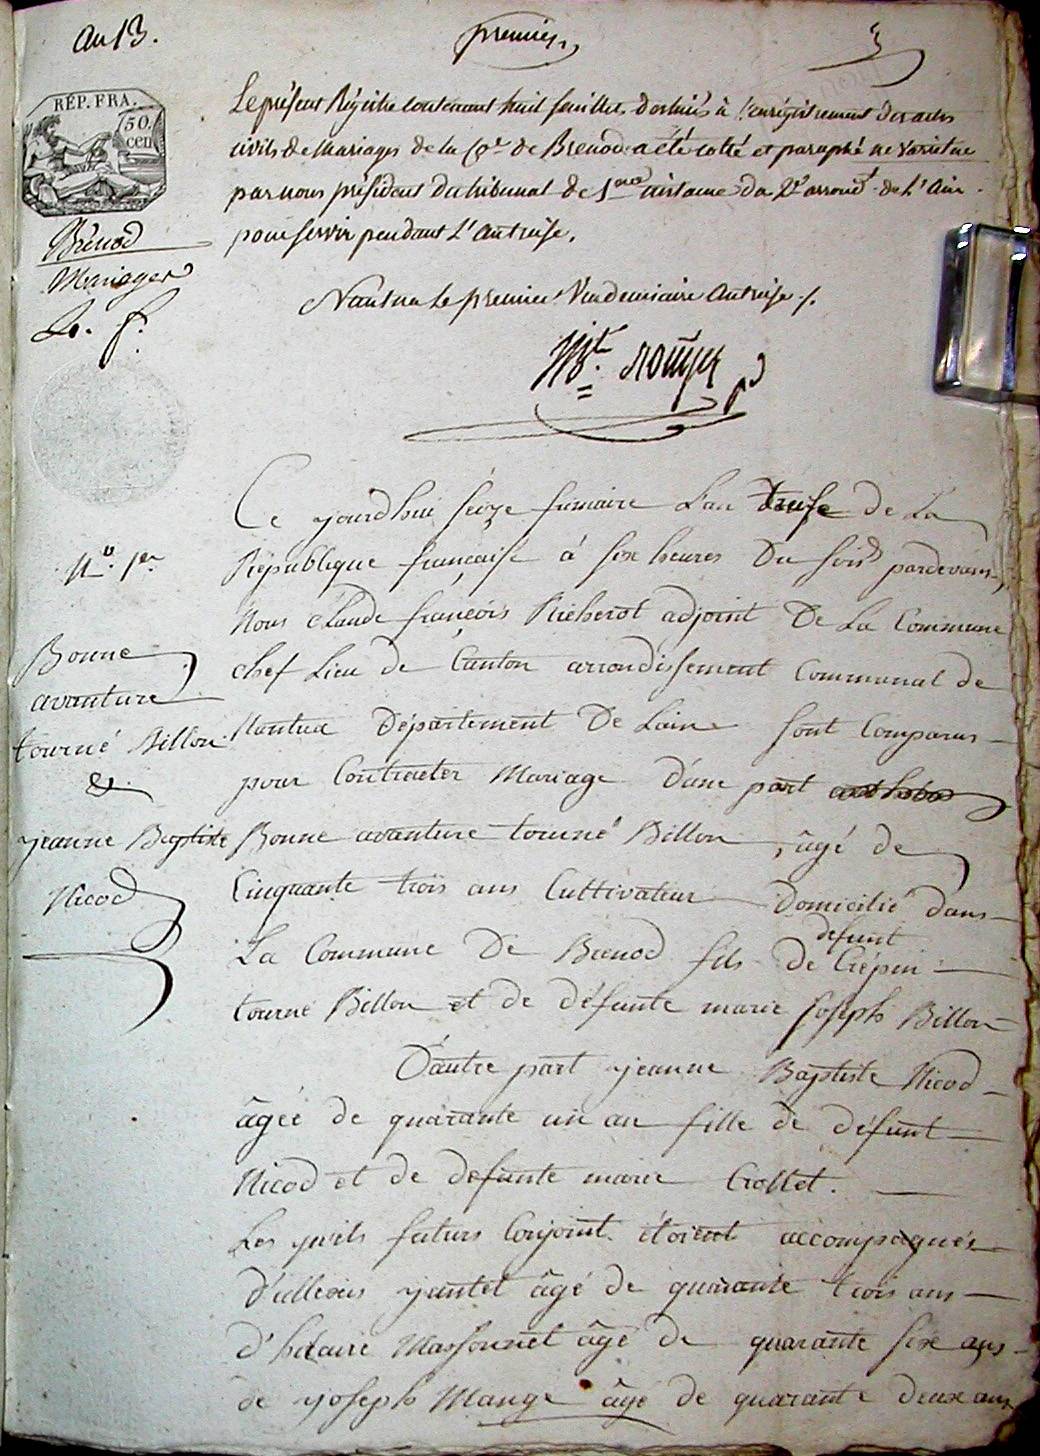 an 13.
premier,
RÉP. FRA.
50.
cen
Le présent Régistre contenant huit feuillets destinés à l'enrégistrement des actes
civils de Mariages de la Coe. de Brenod a été cotté et paraphé ne varietur
par nous président du tribunal de 1ere instance du 2e arrond.t de l'Ain
pour servir pendant l'an treise.
Brénod
Mariages
Nantua le premier Vendemiaire an treise ./.
N.º 1er
Ce yourd'hui seize frimaire L'an treise de La
République française à six heures Du soir pardevant
Nous Claude françois Richerot adjoint De La Commune
chef Lieu de Canton arrondissement Communal de
Nantua Département De Lain sont Comparus
pour Contracter Mariage D'une part
Bonne avanture tourné Billon, âgé de
Cinquante trois ans Cultivateur Domicilié dans
La Commune De Brenod fils de defunt Crépin
tourné Billon et de défunte marie Joseph Billon
D'autre part yeanne Baptiste Nicod
âgée de quarante un an fille de défunt
Nicod et de defunte marie Crollet.
Les futurs Conjoint étoient accompagnés
yantet âgé de quarante trois ans
d'hilaire Massonnet âgé de quarante six ans
de yoseph Mange âgé de quarante deux ans
Bonne
avanture
tourné Billon
&
yeanne Baptiste
Nicod